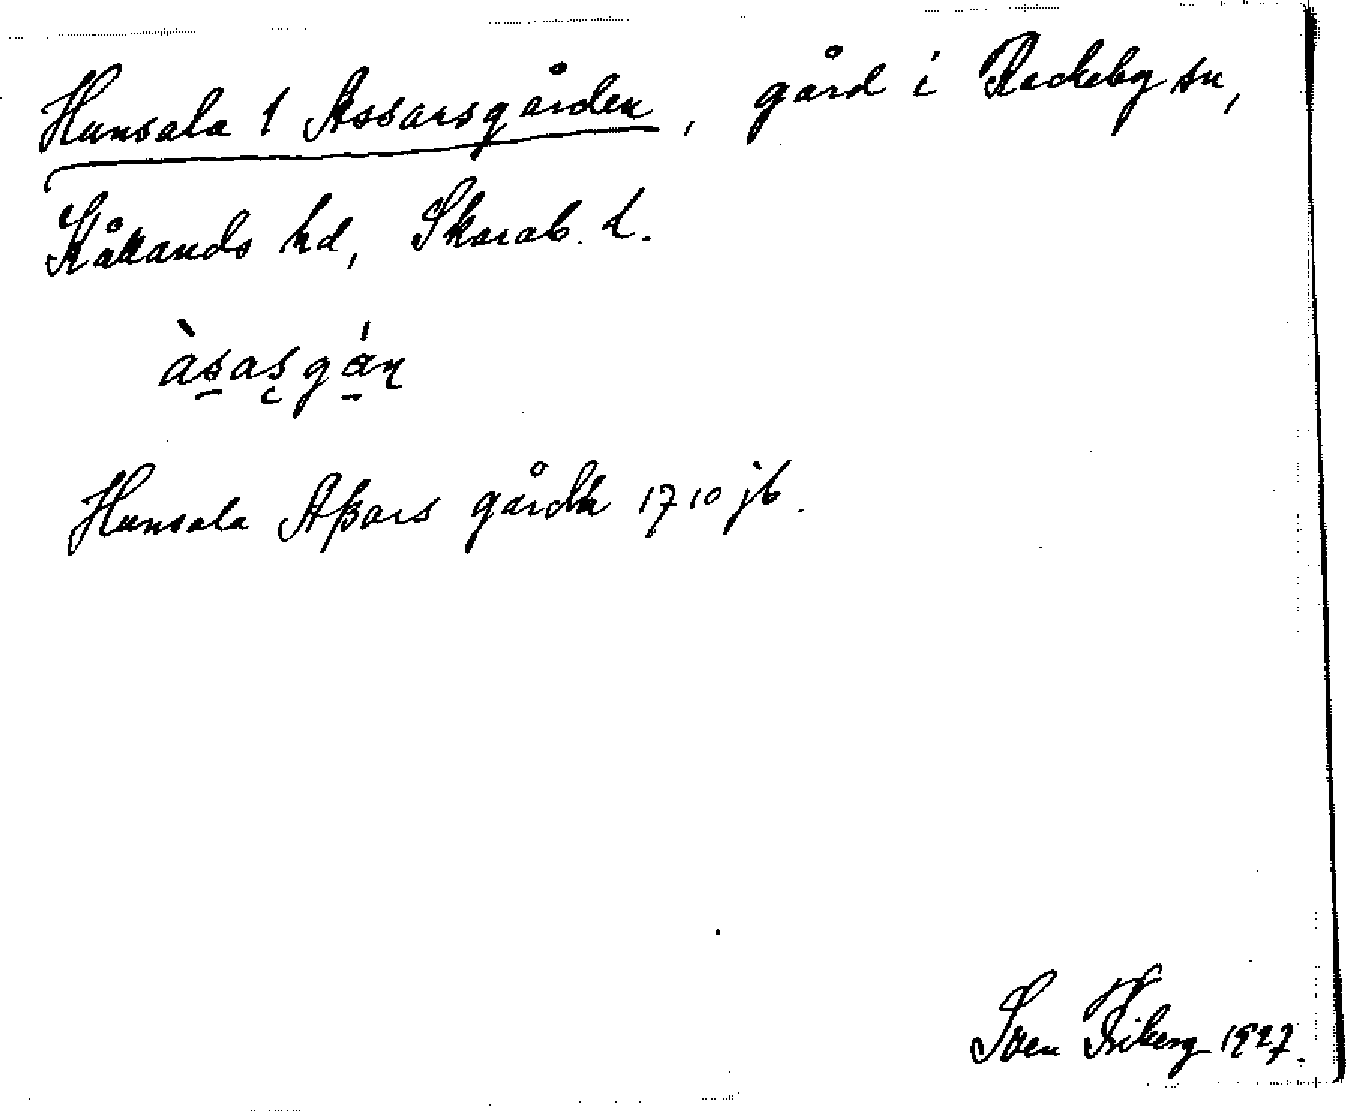 Hunsala 1 Assarsgården, gård i Rackeby sn,
Kållands hd, Skarab. l.
àsasgán
Hunsala Aßars gårdh 1710 jb.
Sven Friberg 1927.